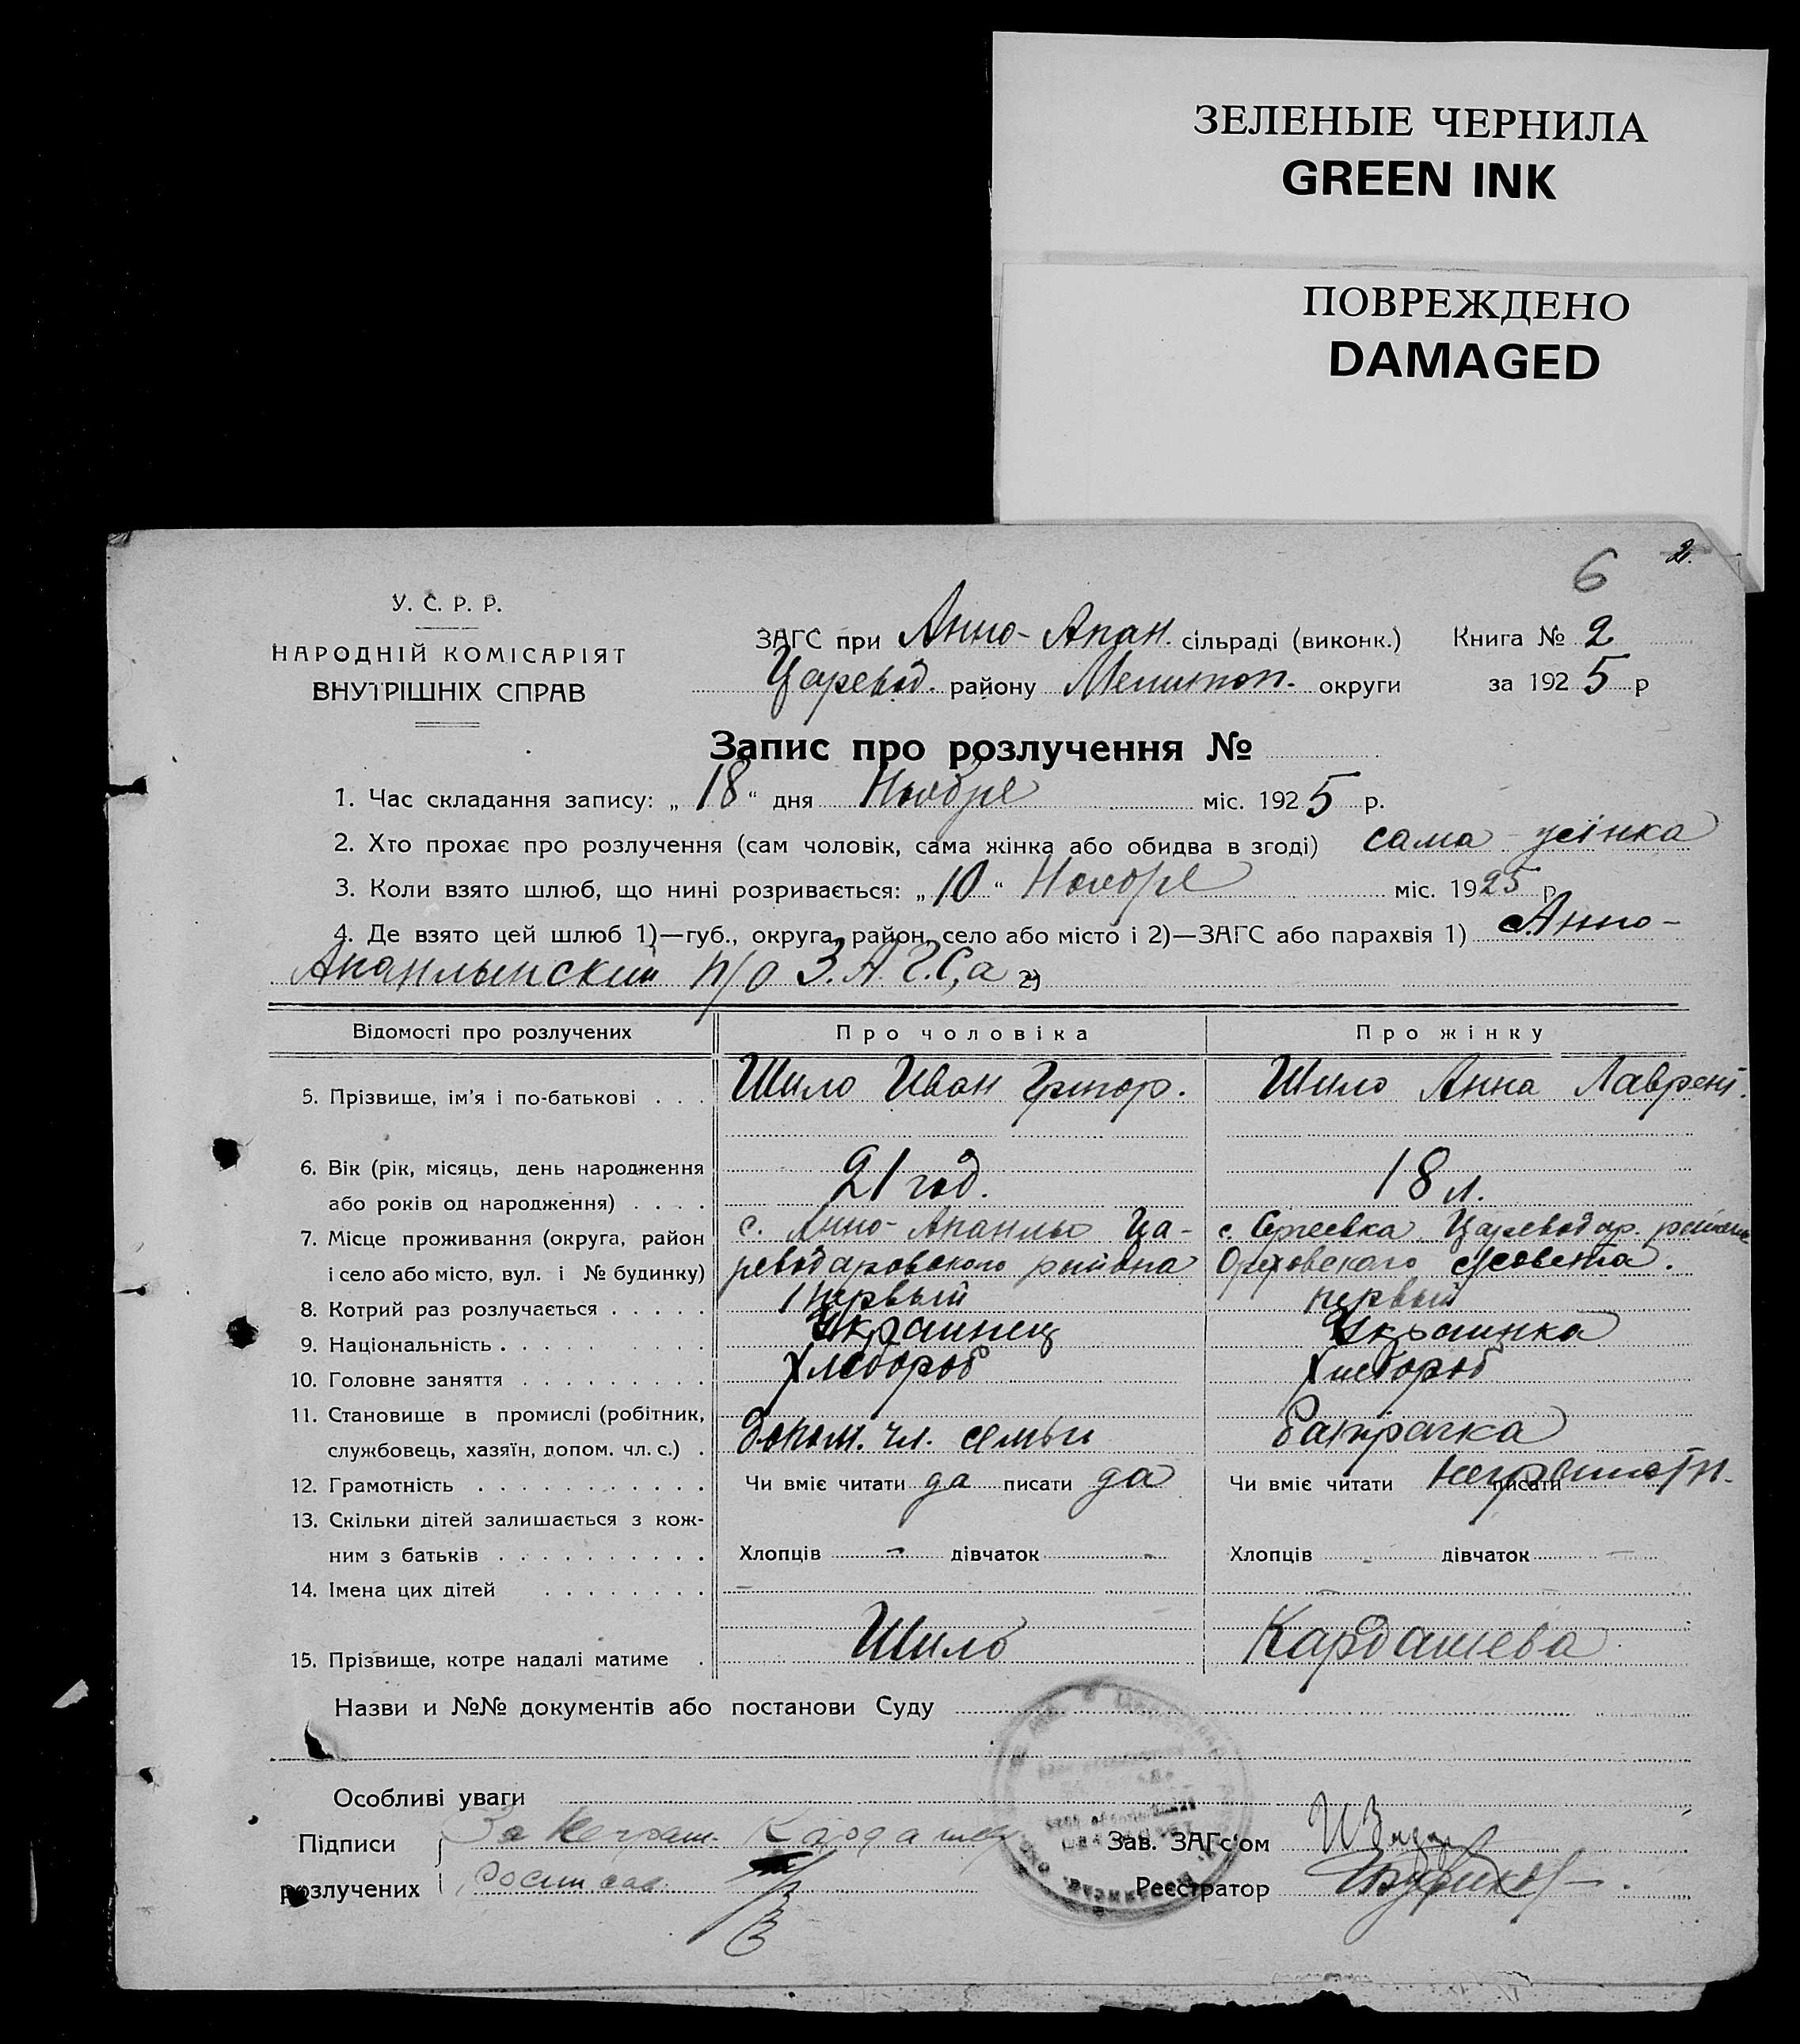 ЗЕЛЕНЫЕ ЧЕРНИЛА
GREEN INK
ПОВРЕЖДЕНО
DAMAGED
6 2.
У. С. Р. Р.
НАРОДНІЙ КОМІСАРІЯТ
ВНУТРІШНІХ СПРАВ
ЗАГС при Анно-Апан. сільраді (виконк.) Книга № 2
Царевод. району Мелитоп. округи за 1925 р
Запис про розлучення №
1. Час складання запису: „18“ дня Ноября міс. 1925 р.
2. Хто прохає про розлучення (сам чоловік, сама жінка або обидва в згоді) сама жінка
3. Коли взято шлюб, що нині розривається: „10“ Ноября міс. 1925 р.
4. Де взято цей шлюб 1)—губ., округа, район, село або місто і 2)—ЗАГС або парахвія 1) Анно-
Апанлынский п/о З.А.Г.С,а 2)
Відомості про розлучених Про чоловіка Про жінку
5. Прізвище, ім'я і по-батькові . . . Шило Иван Григор. Шило Анна Лаврент.
6. Вік (рік, місяць, день народження
або років од народження) . . . . 21 год. 18 л.
7. Місце проживання (округа, район с. Анно-Апанлы Ца- с. Сергеевка Цареводар. района
і село або місто, вул. і № будинку) реводаровского района Ореховского с/совета.
8. Котрий раз розлучається . . . . . первый первый
9. Національність . . . . . . . . . Украинец Украинка
10. Головне заняття . . . . . . . . . Хлебороб Хлебороб
11. Становище в промислі (робітник,
службовець, хазяїн, допом. чл. с.) . допом. чл. семьи батрачка
12. Грамотність . . . . . . . . . . . Чи вміє читати да писати да Чи вміє читати писати неграмотн.
13. Скільки дітей залишається з кож-
ним з батьків . . . . . . . . . . Хлопців - дівчаток - Хлопців - дівчаток -
14. Імена цих дітей . . . . . . . . - - -
15. Прізвище, котре надалі матиме . Шило Кардашева
Назви и №№ документів або постанови Суду
Особливі уваги
Підписи За неграм. Кардашеву Зав. ЗАГс'ом
розлучених росписал Реєстратор